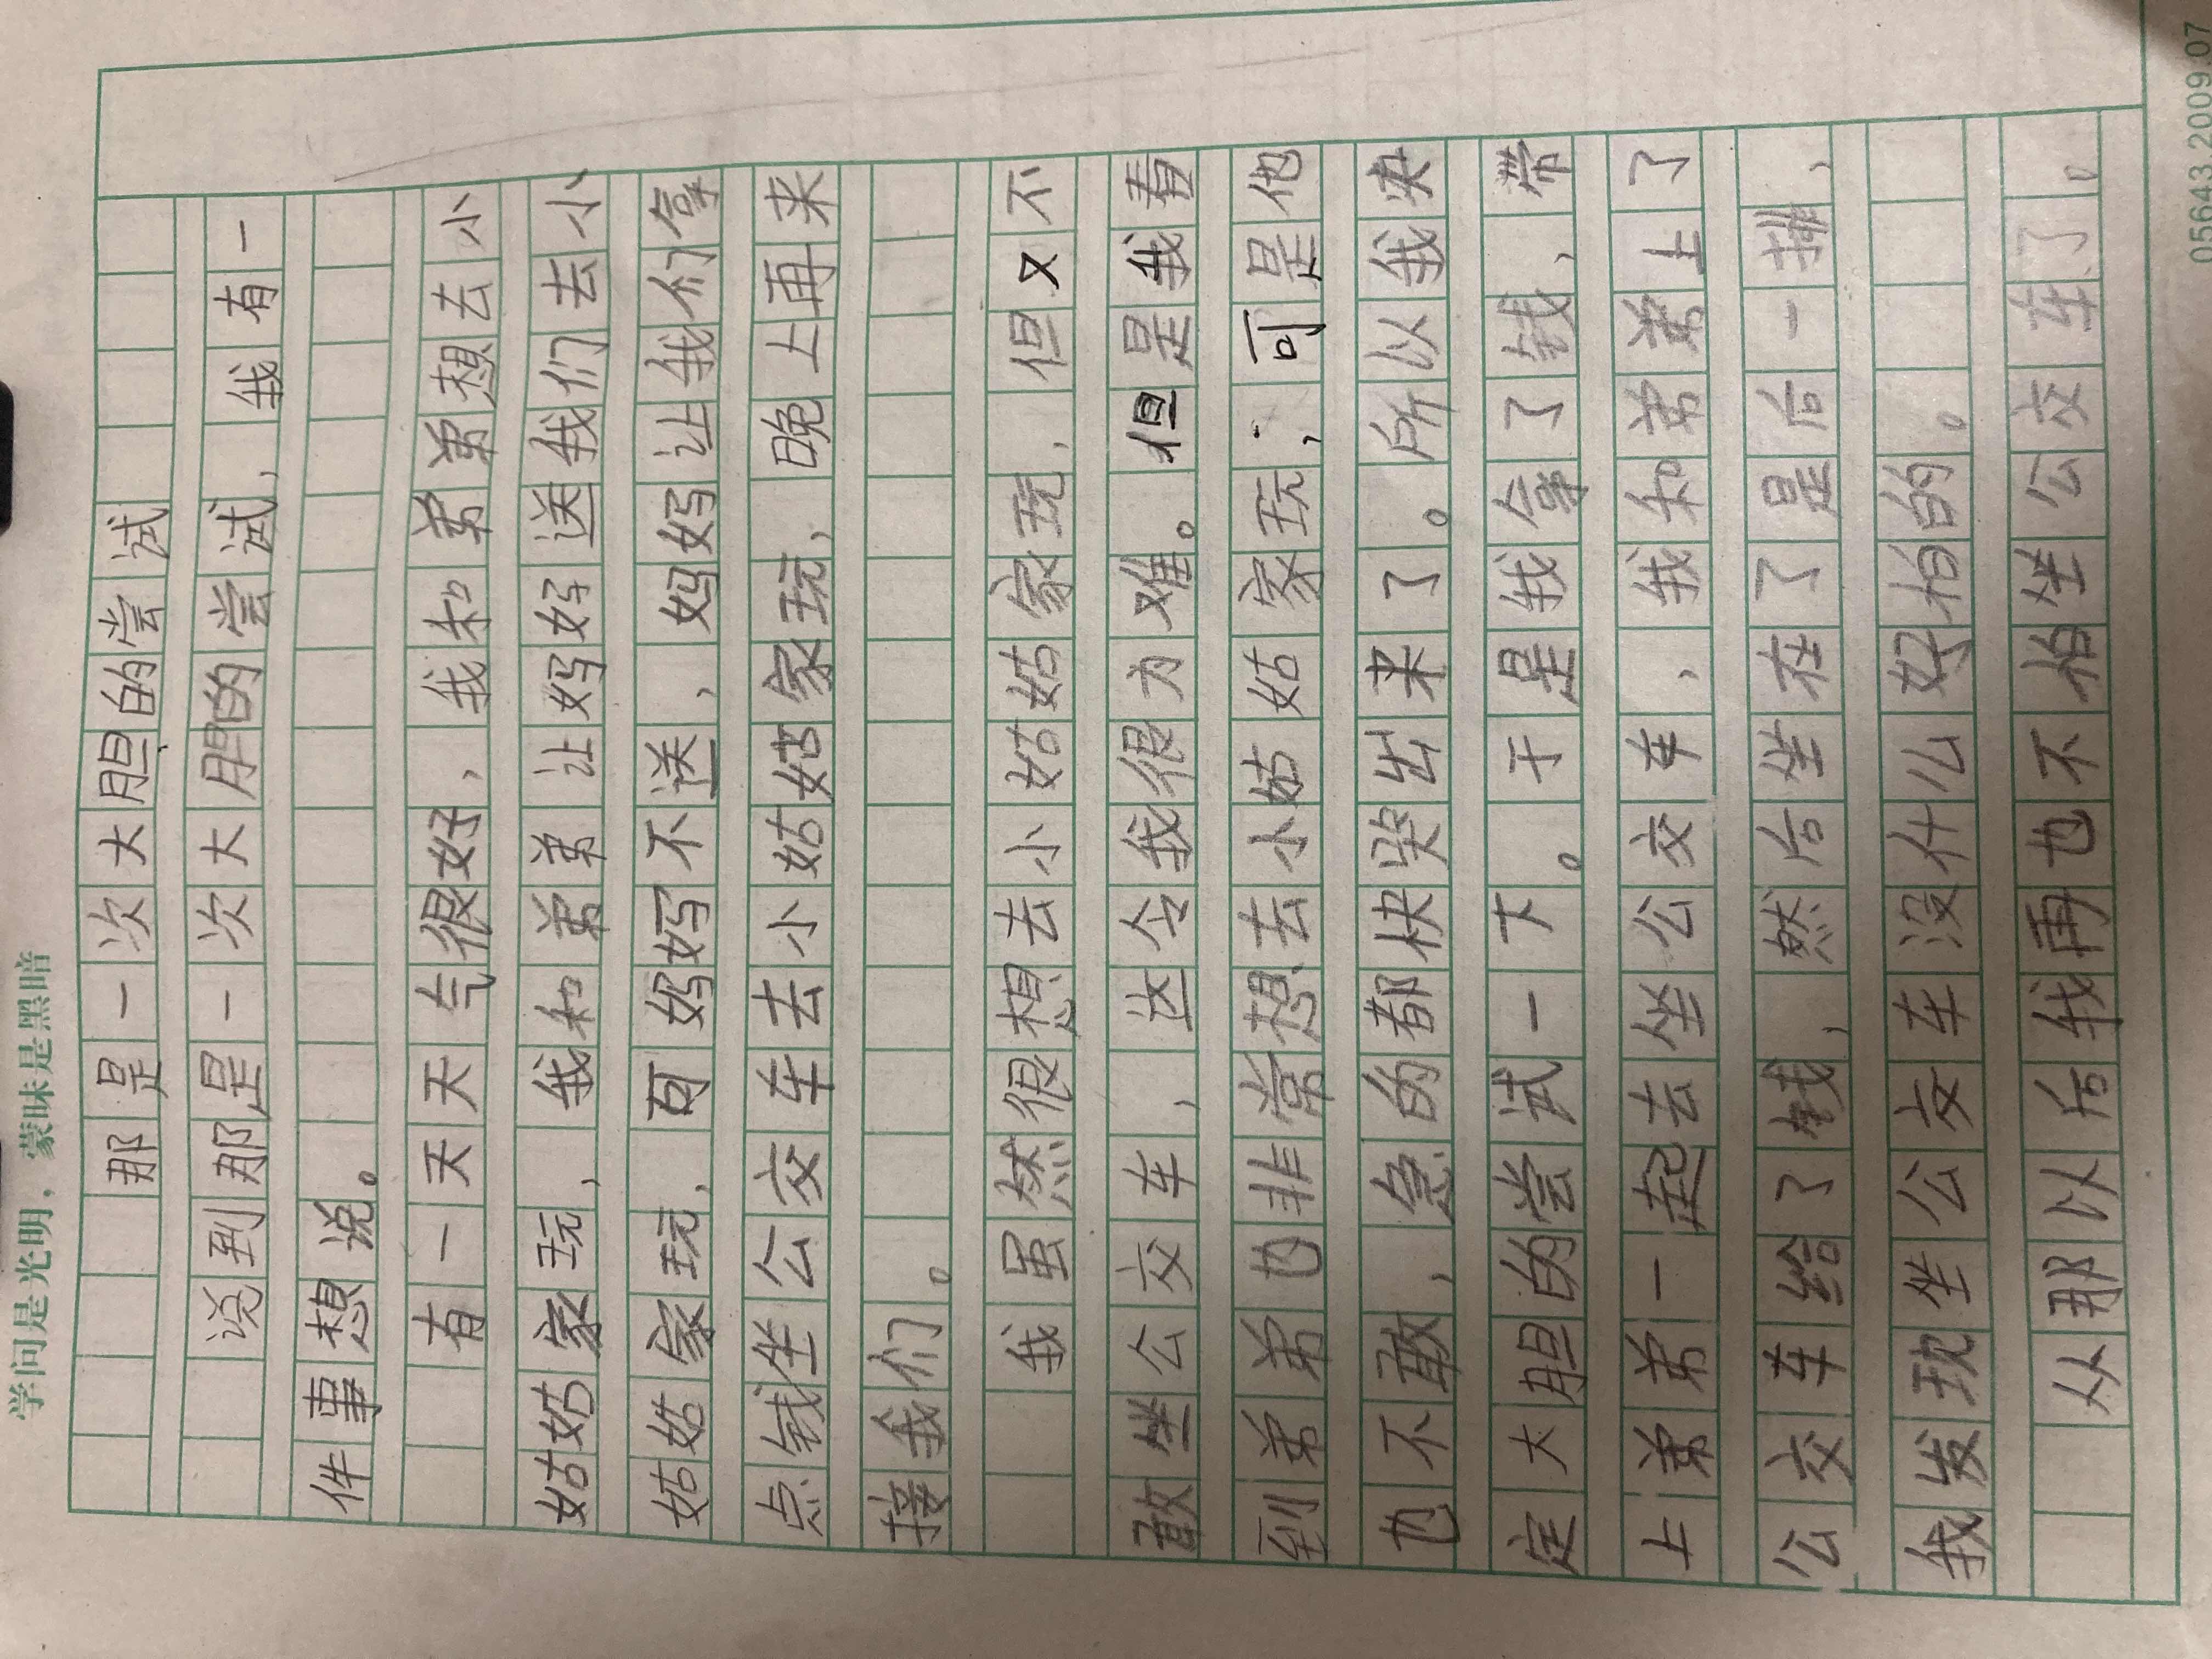 学问是光明，蒙昧是黑暗
那是一次大胆的尝试
说到那是一次大胆的尝试，我有一
件事想说。
有一天天气很好，我和弟弟想去小
姑姑家玩，我和弟弟让妈妈送我们去小
姑姑家玩，可妈妈不送，妈妈让我们拿
点钱坐公交车去小姑姑家玩，晚上再来
接我们。
我虽然很想去小姑姑家玩，但又不
敢坐公交车，这令我很为难。但是我看
到弟弟也非常想去小姑姑家玩，可是他
也不敢，急的都快哭出来了。所以我决
定大胆的尝试一下。于是我拿了钱，带
上弟弟一起去坐公交车，我和弟弟上了
公交车给了钱，然后坐在了是后一排，
我发现坐公交车没什么好怕的。
从那以后我再也不怕坐公交车了。
05643.2009.07